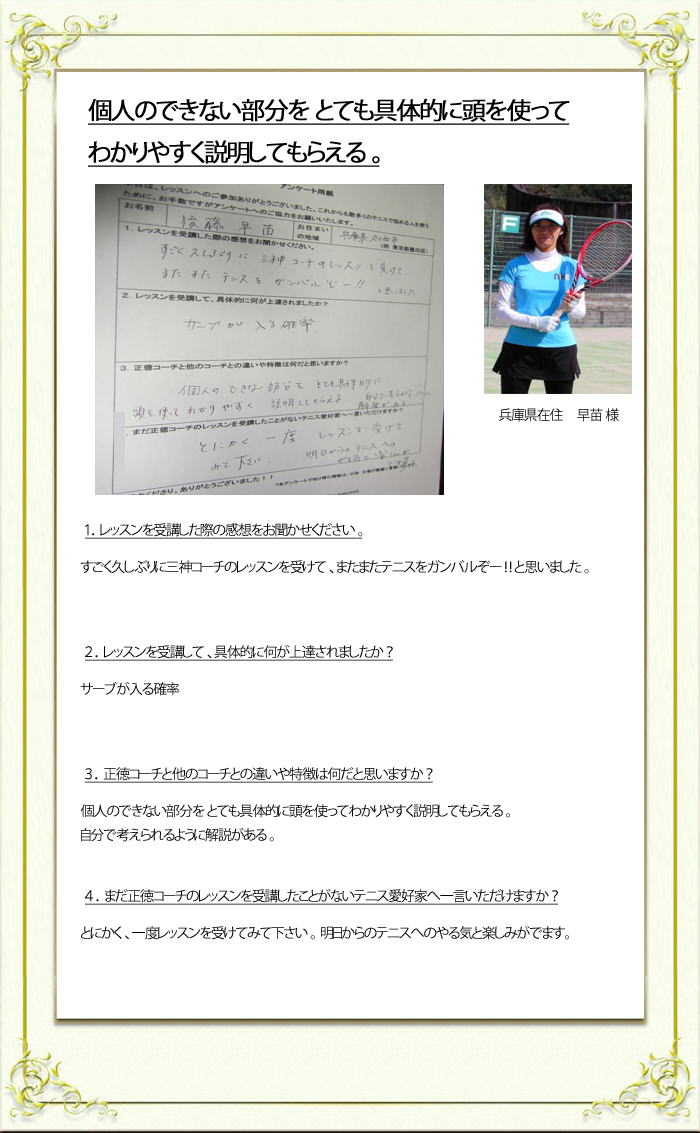 個人のできない部分を とても具体的に頭を使って
わかりやすく説明してもらえる 。
アンケート用紙
は、レッスンへのご参加ありがとうございました。これからも数多くのテニスで悩める人を救う
ために、お手数ですがアンケートへのご協力をお願いいたします。
お名前
早苗
お住まいの地域
兵庫県加西市
(例 東京都墨田区)
1. レッスンを受講した際の感想をお聞かせください。
すごく久しぶりに 三神コーチのレッスンを受けて
またまた テニスを ガンバルぞー!! と思いました
2. レッスンを受講して、具体的に何が上達されましたか?
サーブが 入る確率
3. 正徳コーチと他のコーチとの違いや特徴は何だと思いますか?
個人の できない部分を とても具体的に
頭を使って わかりやすく 説明してもらえる
. まだ正徳コーチのレッスンを受講したことがないテニス愛好家へ一言いただけますか?
とにかく 一度 レッスンを 受けて
みて下さい. 明日からのテニスへの
ください、ありがとうございました!!
F
兵庫県在住 早苗 様
1. レッスンを受講した際の感想をお聞かせください 。
すごく久しぶりに三神コーチのレッスンを受けて 、またまたテニスをガンバルぞー !! と思いました 。
2. レッスンを受講して 、具体的に何が上達されましたか ?
サーブが入る確率
3. 正徳コーチと他のコーチとの違いや特徴は何だと思いますか ?
個人のできない部分を とても具体的に頭を使ってわかりやすく説明してもらえる 。
自分で考えられるように解説がある 。
4. まだ正徳コーチのレッスンを受講したことがないテニス愛好家へ一言いただけますか ?
とにかく 、一度レッスンを受けてみて下さい 。明日からのテニスへのやる気と楽しみがでます。